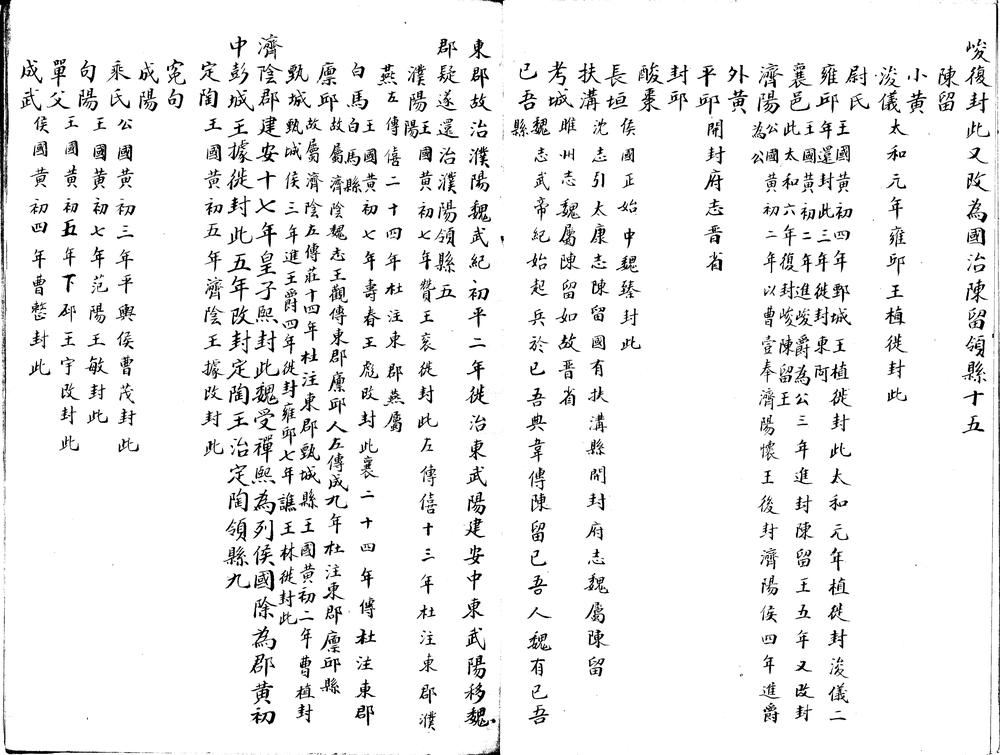 峻復封此又改為國治陳留領縣十五
陳留
小黃
浚儀太和元年雍邱王植徙封此
尉氏
雍邱王國黃初四年鄄城王植徙封此太和元年植徙封浚儀二
年還封此三年徙封東阿
襄邑王國黃初二年進峻爵為公三年進封陳留王五年又改封
此太和六年復封峻陳留王
濟陽公國黃初二年以曹壹奉濟陽懷王後封濟陽侯四年進爵
為公
外黃
平邱開封府志晉省
封邱
酸棗
長垣侯國正始中魏臻封此
扶溝沈志引太康志陳留國有扶溝縣開封府志魏屬陳留
考城睢州志魏屬陳留如故晉省
已吾魏志武帝紀始起兵於已吾典韋傳陳留已吾人魏有已吾
縣
東郡故治濮陽魏武紀初平二年徙治東武陽建安中東武陽移魏
郡疑遂還治濮陽領縣五
濮陽王國黃初七年贊王袤徙封此左傳僖十三年杜注東郡濮
陽
燕左傳僖二十四年杜注東郡燕屬
白馬王國黃初七年壽春王彪改封此襄二十四年傳杜注東郡
白馬縣
廩邱故屬濟陰魏志王觀傳東郡廩邱人左傳成九年杜注東郡廩邱縣
甄城故屬濟陰左傳莊十四年杜注東郡甄城縣王國黃初二年曹植封
甄城侯三年進王爵四年徙封雍邱七年譙王林徙封此
濟陰郡建安十七年皇子熙封此魏受禪熙為列侯國除為郡黃初
中彭城王據徙封此五年改封定陶王治定陶領縣九
定陶王國黃初五年濟陰王據改封此
寃句
成陽
乘氏公國黃初三年平輿侯曹茂封此
句陽王國黃初七年范陽王敏封此
單父王國黃初五年下邳王宇改封此
成武侯國黃初四年曹整封此